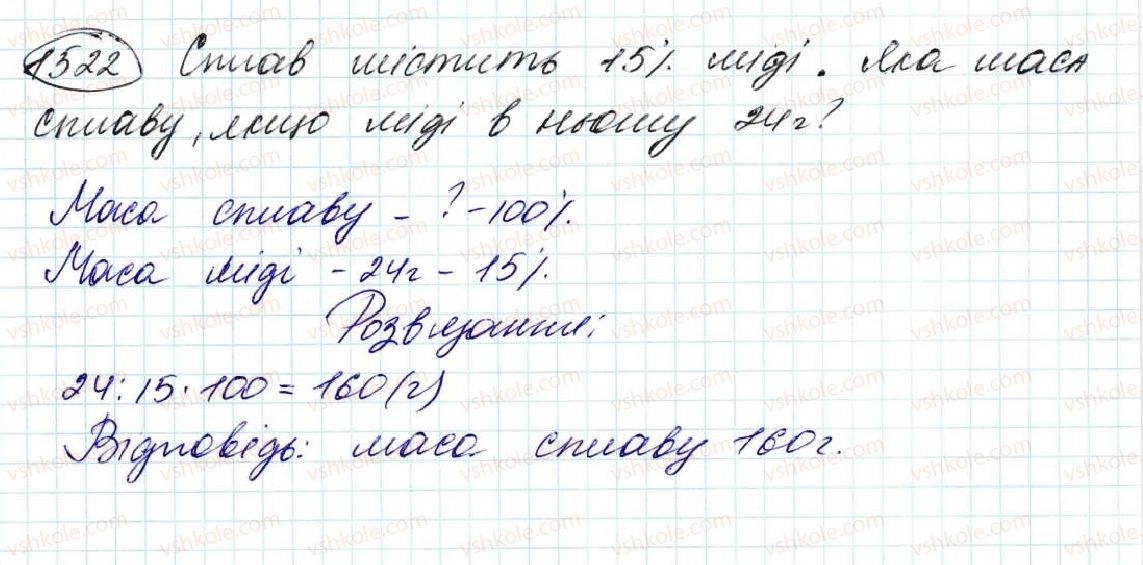 1522 Сплав містить 15% міді. Яка маса
сплаву, якщо міді в ньому 24г?
Маса сплаву - ? - 100%.
Маса міді - 24г - 15%.
Розв'язання:
24:15·100=160(г)
Відповідь: маса сплаву 160г.